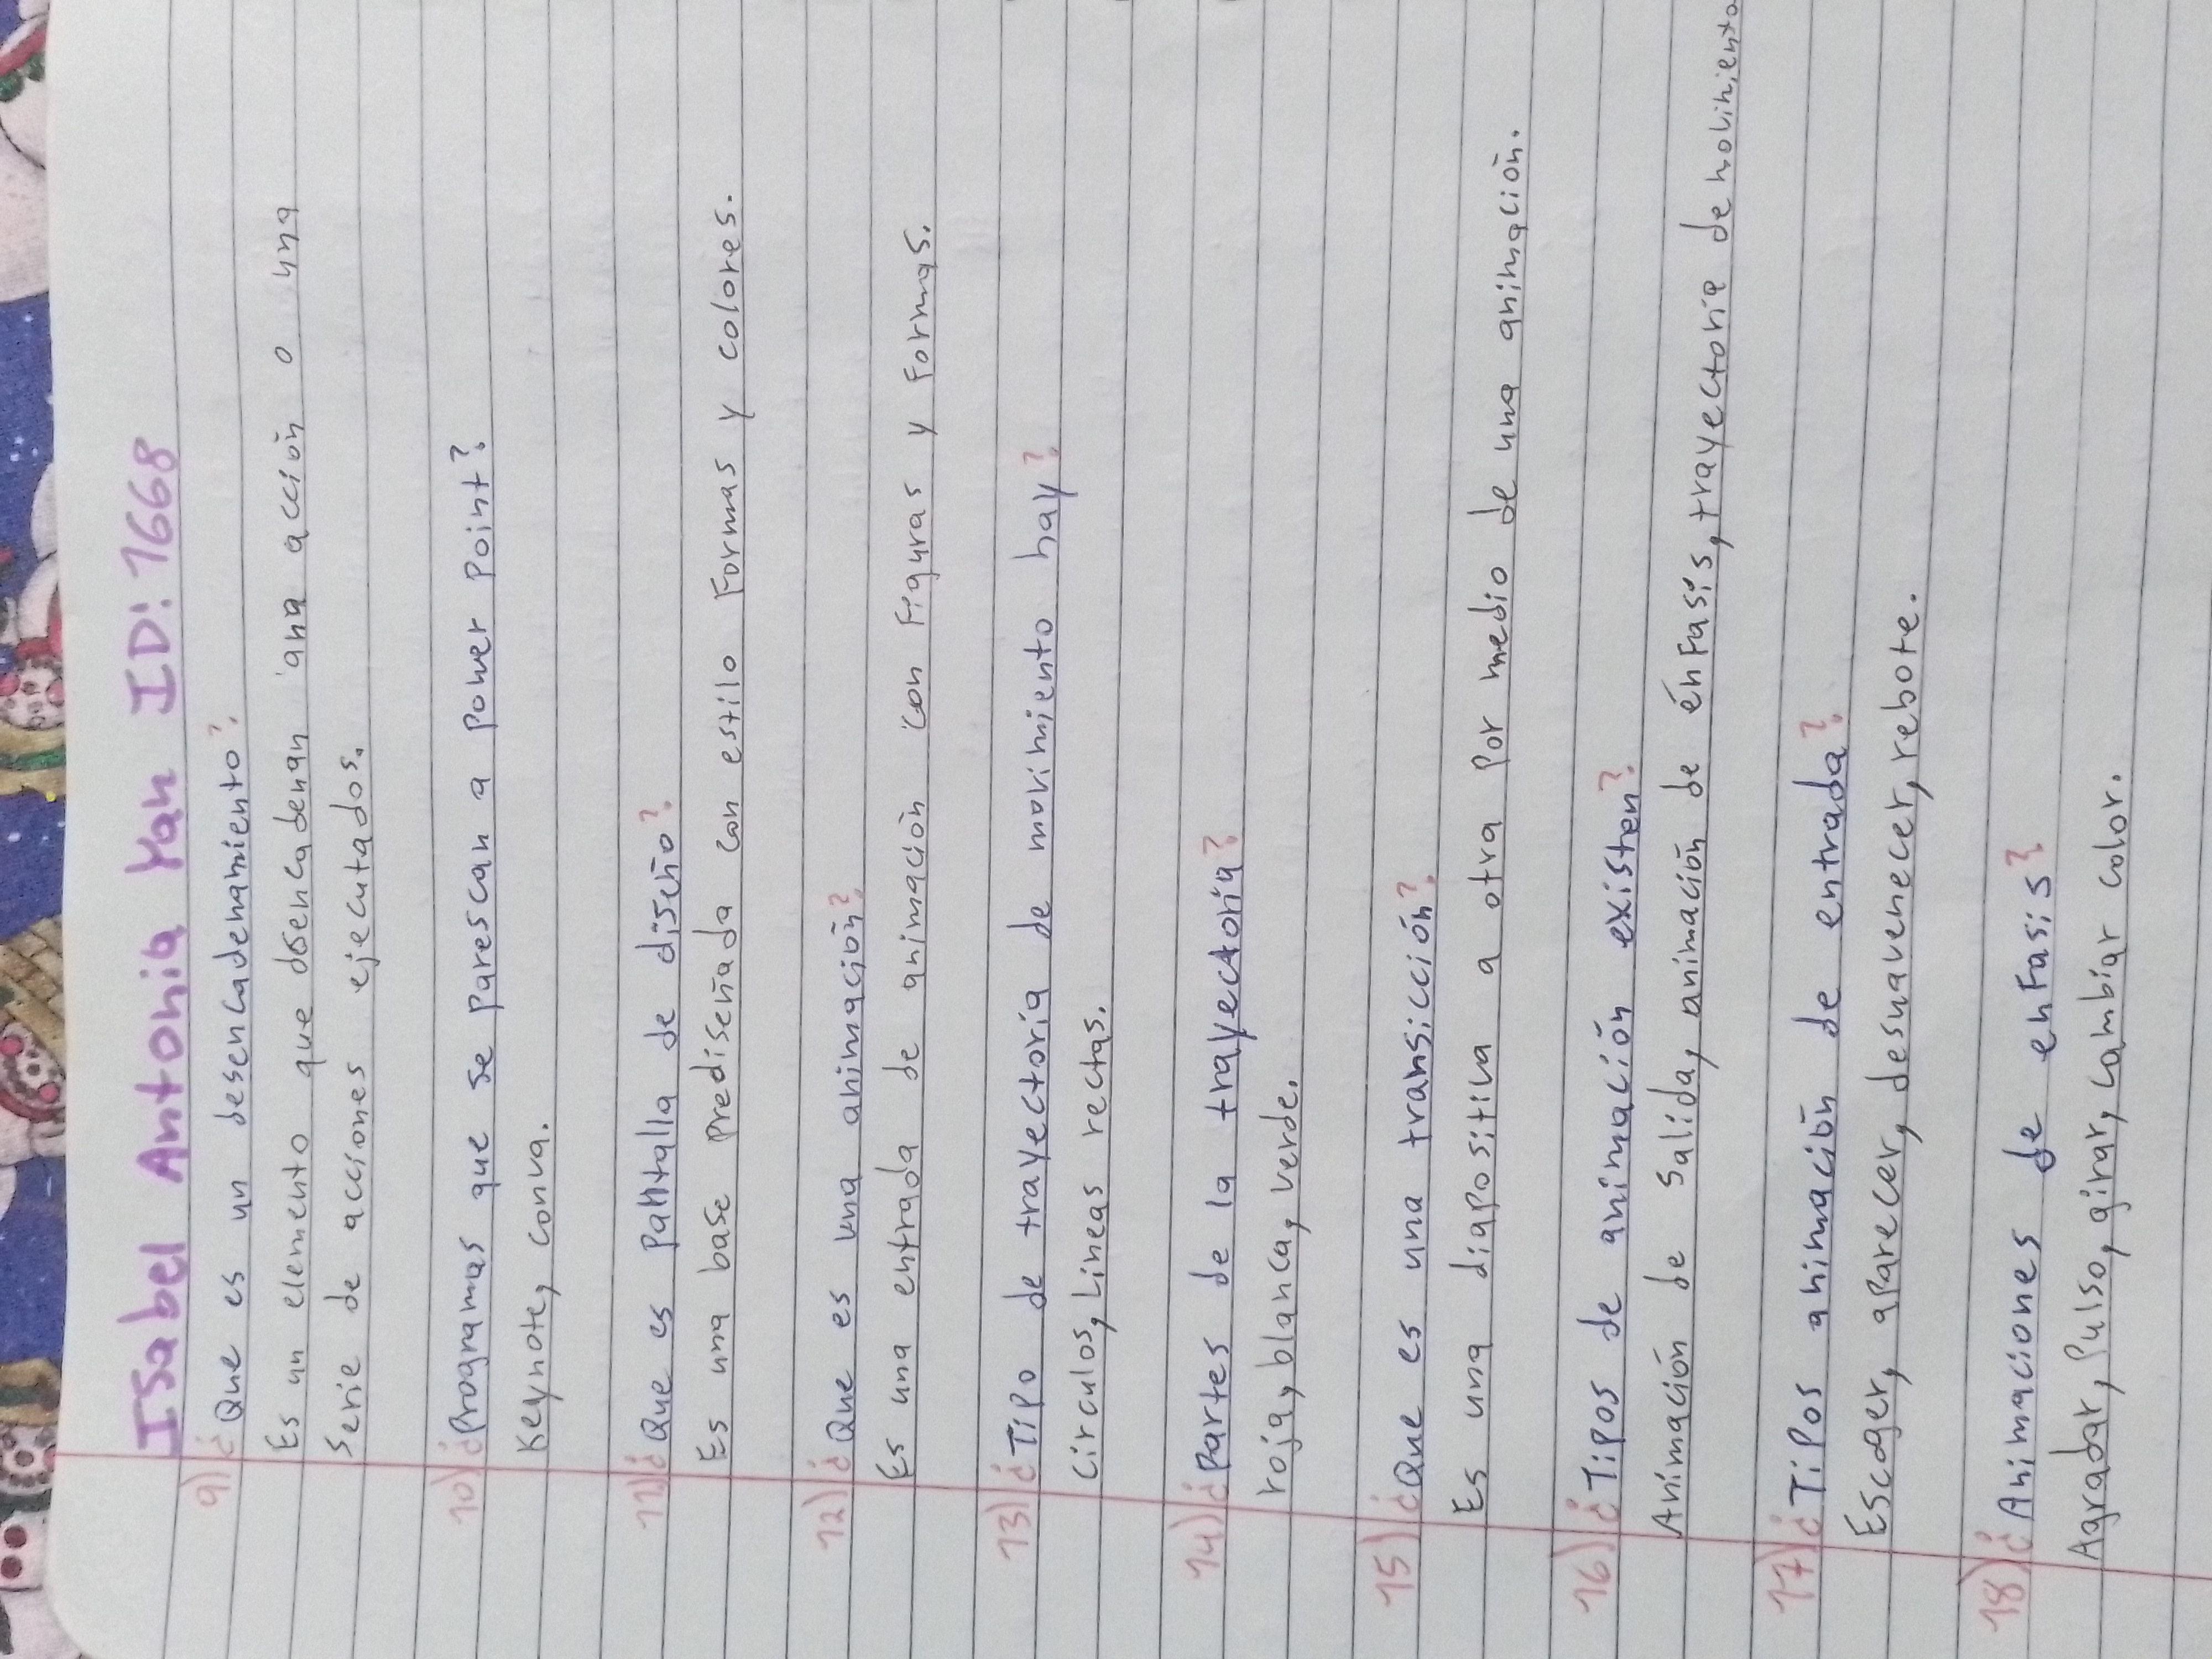 Isabel Antonia Yan ID: 1668
9) ¿Que es un desencadenamiento?
Es un elemento que desencadenan ana acción o una
serie de acciones ejecutados.
10) ¿Programas que se parescan a power point?
Keynote, conva.
11) ¿Que es pantalla de diseño?
Es una base prediseñada con estilo Formas y colores.
12) ¿Que es una animación?
Es una entrada de animación con Figuras y Formas.
13) ¿Tipo de trayectoria de movimiento hay?
Circulos, Lineas rectas.
14) ¿Partes de la trayectoria?
roja, blanca, verde.
15) ¿Que es una transicción?
Es una diapositiva a otra por medio de una animación.
16) ¿Tipos de animación existen?
Animación de salida, animación de énFasis, trayectorie de movimiento
17) ¿Tipos animación de entrada?
Escoger, aparecer, desnavenecer, rebote.
18) ¿Animaciones de enFasis?
Agradar, Pulso, girar, cambiar color.